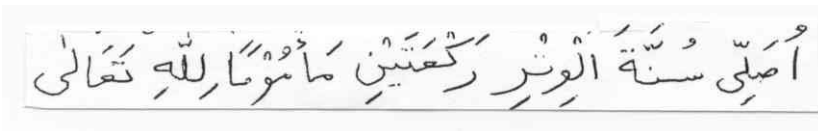 أُصَلِّى سُنَّةَ الْوِتْرِ رَكْعَتَيْنِ مَأْمُوْمًا لِلّٰهِ تَعَالٰى